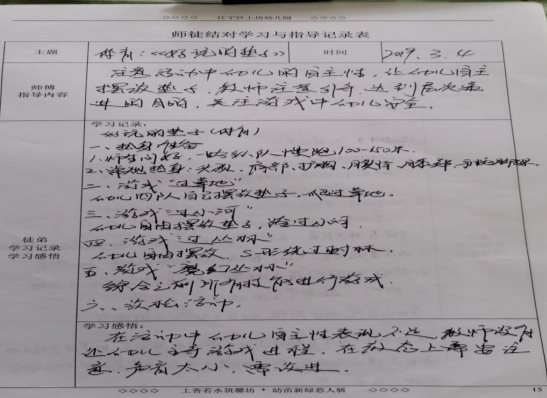 江宁区上坊幼儿园
师徒结对学习与指导记录表
主题
体育:《好玩的垫子》
时间
2019.3.4
师傅
指导内容
注意活动中幼儿的自主性,让幼儿自主
摆放垫子,教师注意引导,达到层次递
进的目的,关注游戏中幼儿安全。
徒弟
学习记录
学习感悟
学习记录:
好玩的垫子(体育)
一、热身准备
1.师生问好,一路纵队慢跑100-150米。
2.常规热身:头部、肩部、扩胸、腹背
二、游戏“过草地”
幼儿四队自己摆放垫子,爬过草地。
三、游戏“过小河”
幼儿自由摆放垫子,跨过小河
四、游戏“过丛林”
幼儿自由摆放,S形绕过树林。
五、游戏“魔幻丛林”
综合之前所用技能进行游戏。
六、放松活动。
学习感悟:
在活动中幼儿自主性表现不足,教师没有
让幼儿主导游戏进程,在教态上需要注
意,声音太小,需改进。
上善若水筑馨坊 * 幼苗新绿惹人骄
15